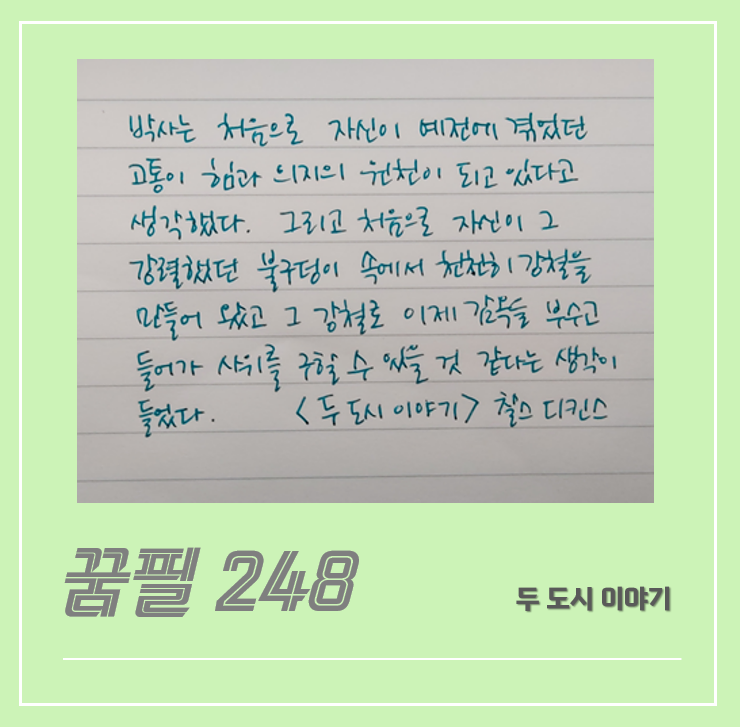 박사는 처음으로 자신이 예전에 겪었던
고통이 힘과 의지의 원천이 되고 있다고
생각했다. 그리고 처음으로 자신이 그
강렬했던 불구덩이 속에서 천천히 강철을
만들어 왔고 그 강철로 이제 감옥을 부수고
들어가 사위를 구할 수 있을 것 같다는 생각이
들었다. <두 도시 이야기> 찰스 디킨스
꿈필 248
두 도시 이야기